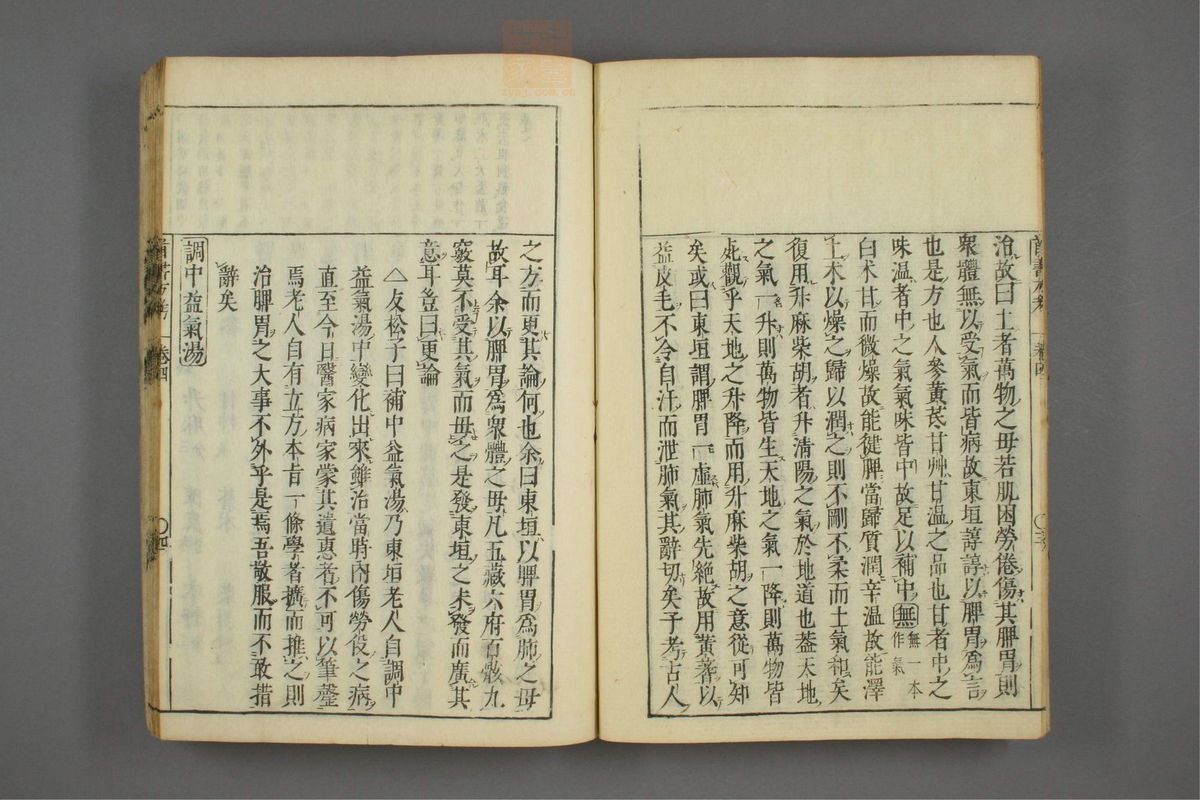 治故曰土者萬物之母若肌困勞倦傷其脾胃則
衆體無以受氣而皆病故東垣諄諄以脾胃爲言
也是方也人參黃芪甘艸甘溫之品也甘者中之
味溫者中之氣氣味皆中故足以補中無無一本作氣
白朮甘而微燥故能健脾當歸質潤辛溫故能澤
土朮以燥之歸以潤之則不剛不柔而土氣和矣
復用升麻柴胡者升清陽之氣於地道也葢天地
之氣一升則萬物皆生天地之氣一降則萬物皆
死觀乎天地之升降而用升麻柴胡之意從可知
矣或曰東垣謂脾胃一虛肺氣先絶故用黃蓍以
益皮毛不令自汗而泄肺氣其辭切矣予考古人
之方而更其論何也余曰東垣以脾胃爲肺之母
故耳余以脾胃爲衆體之母凡五藏六府百骸九
竅莫不受其氣而母之是發東垣之未發而廣其
意耳豈曰更論
△友松子曰補中益氣湯乃東垣老人自調中
益氣湯中變化出來雖治當時內傷勞役之病
直至今日醫家病家蒙其遺惠者不可以筆罄
焉老人自有立方本旨一條學者擴而推之則
治脾胃之大事不外乎是焉吾敬服而不敢措
辭矣
調中益氣湯
卷四